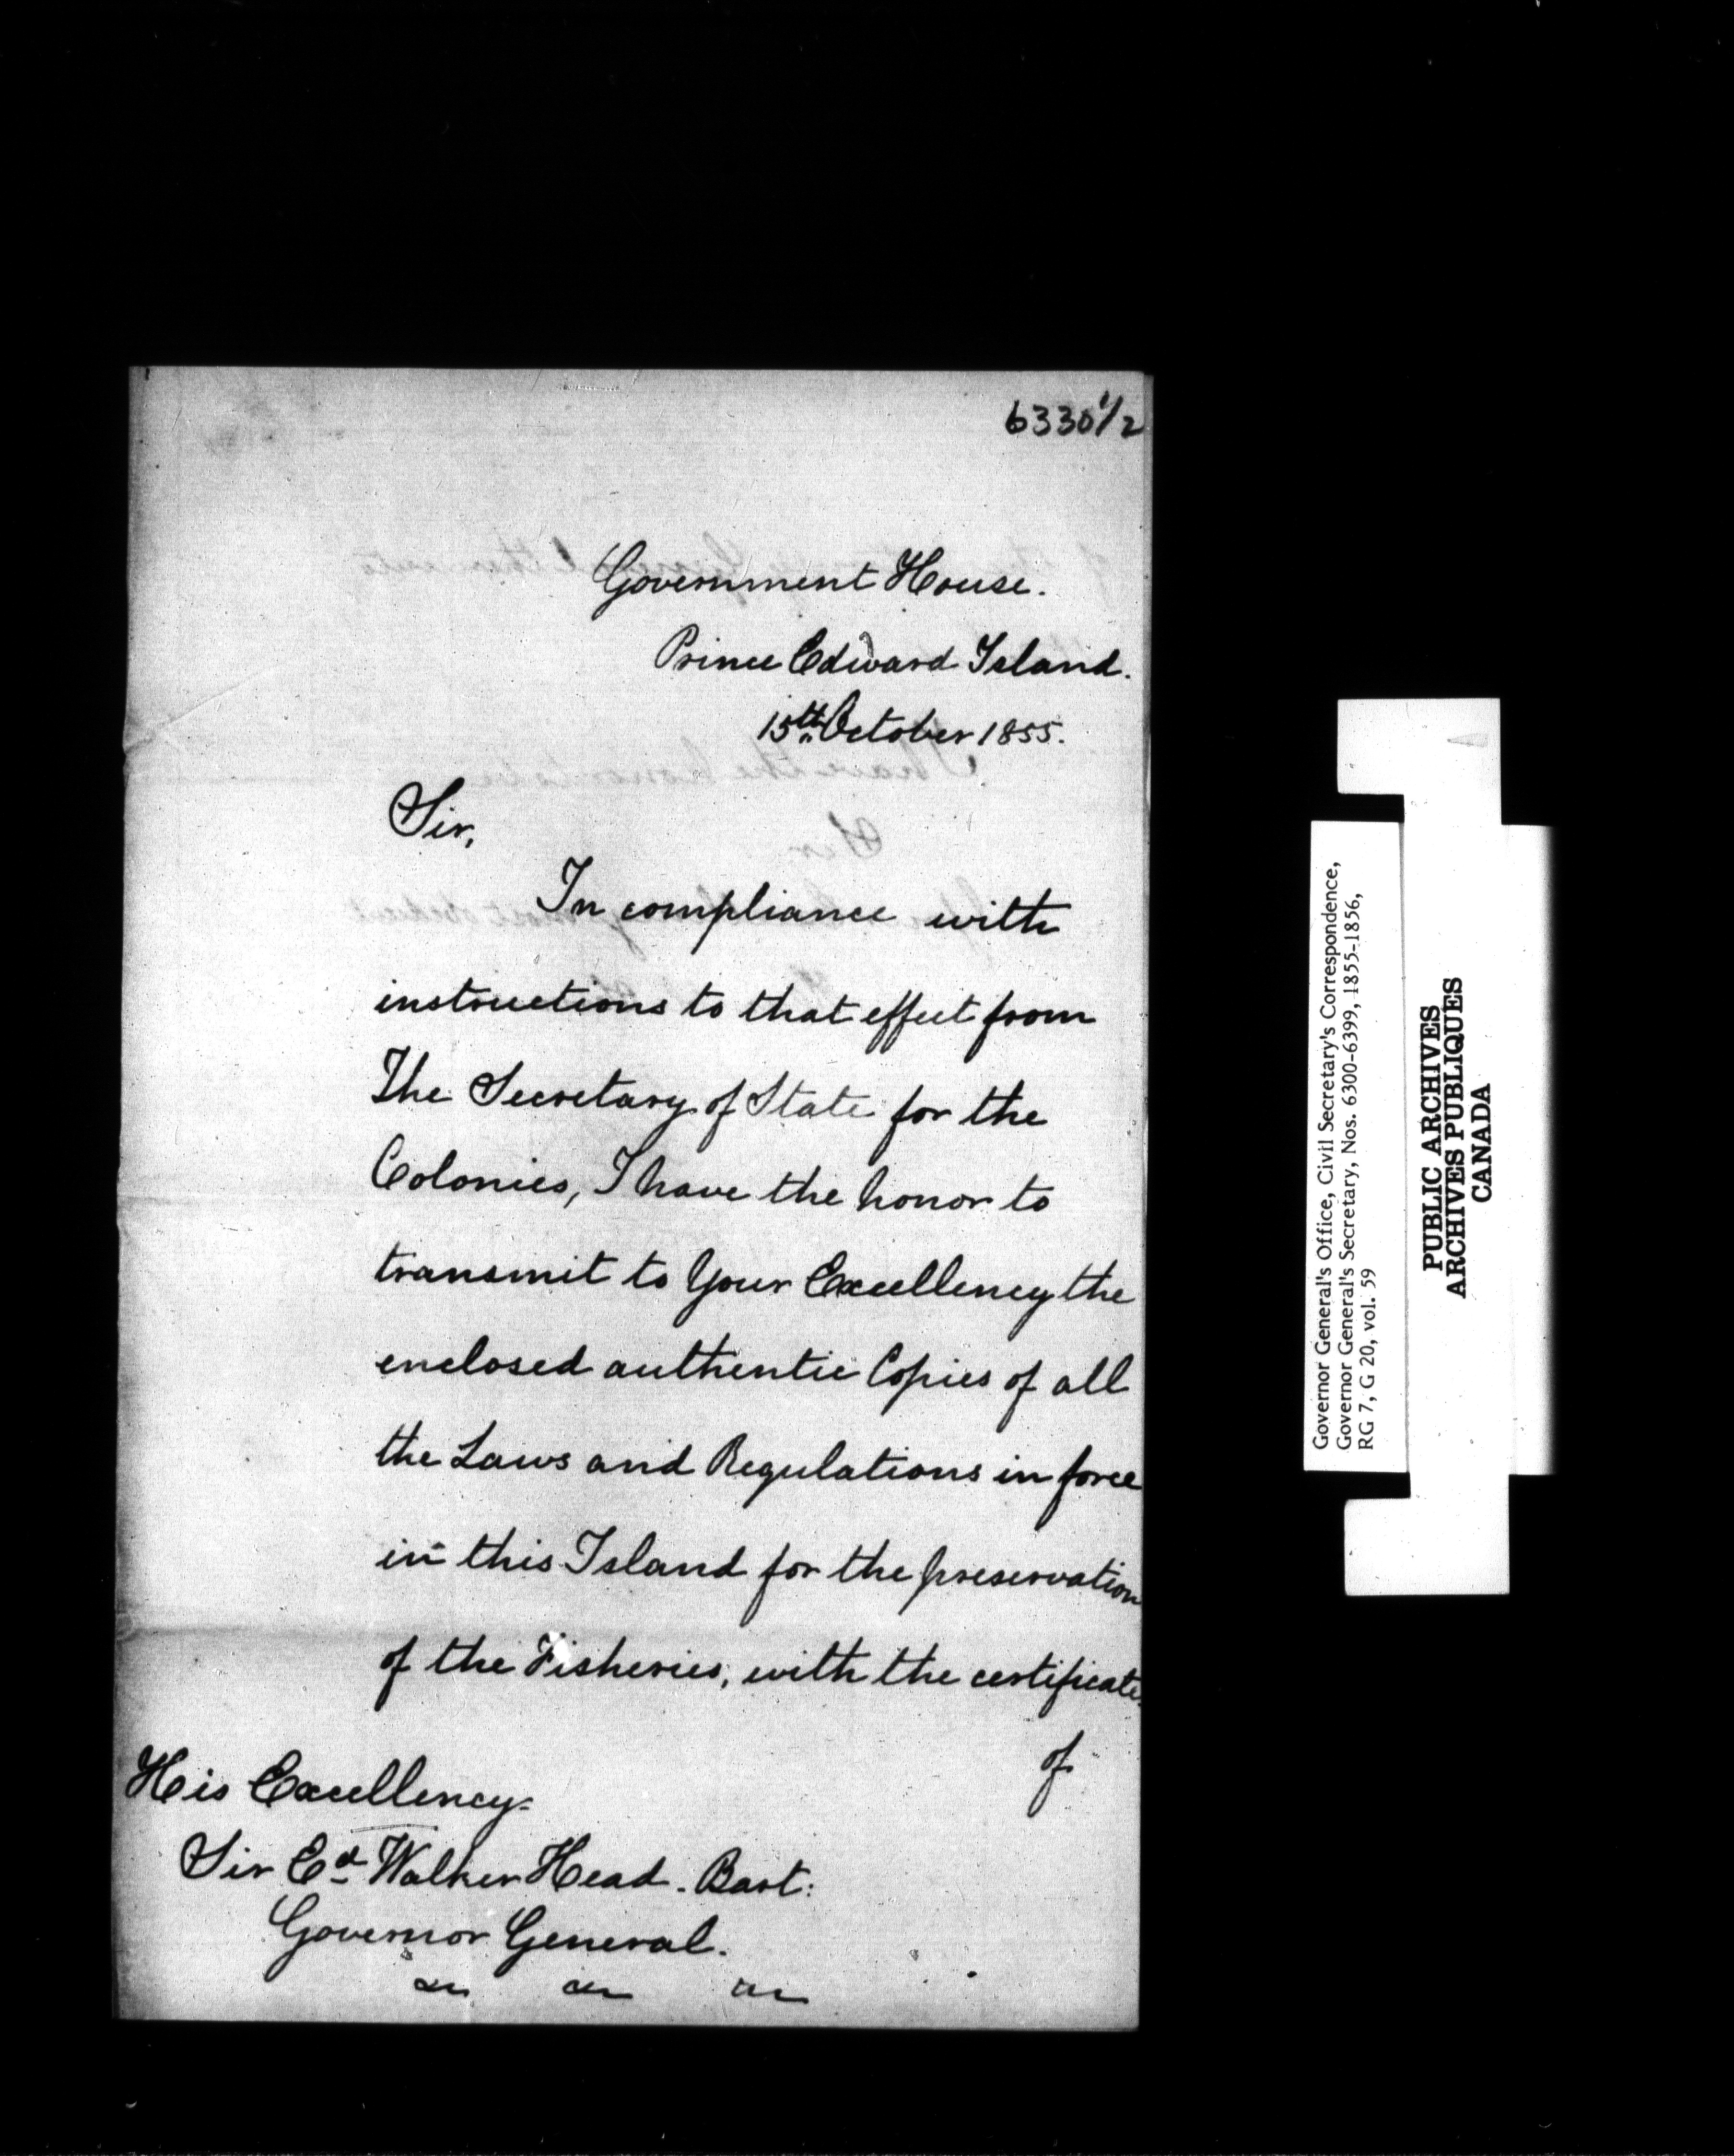 6330 1/2
Government House.
Prince Edward Island.
15th October 1855.
Sir,
In compliance with
instructions to that effect from
The Secretary of State for the
Colonies, I have the honor to
transmit to Your Excellency the
enclosed authentic Copies of all
the Laws and Regulations in force
in this Island for the preservation
of the Fisheries, with the certificate
of
His Excellency
Sir Ed Walker Head. Bart:
Governor General.
Governor General's Office, Civil Secretary's Correspondence,
Governor General's Secretary, Nos. 6300-6399, 1855-1856,
RG 7, G 20, vol. 59
PUBLIC ARCHIVES
ARCHIVES PUBLIQUES
CANADA